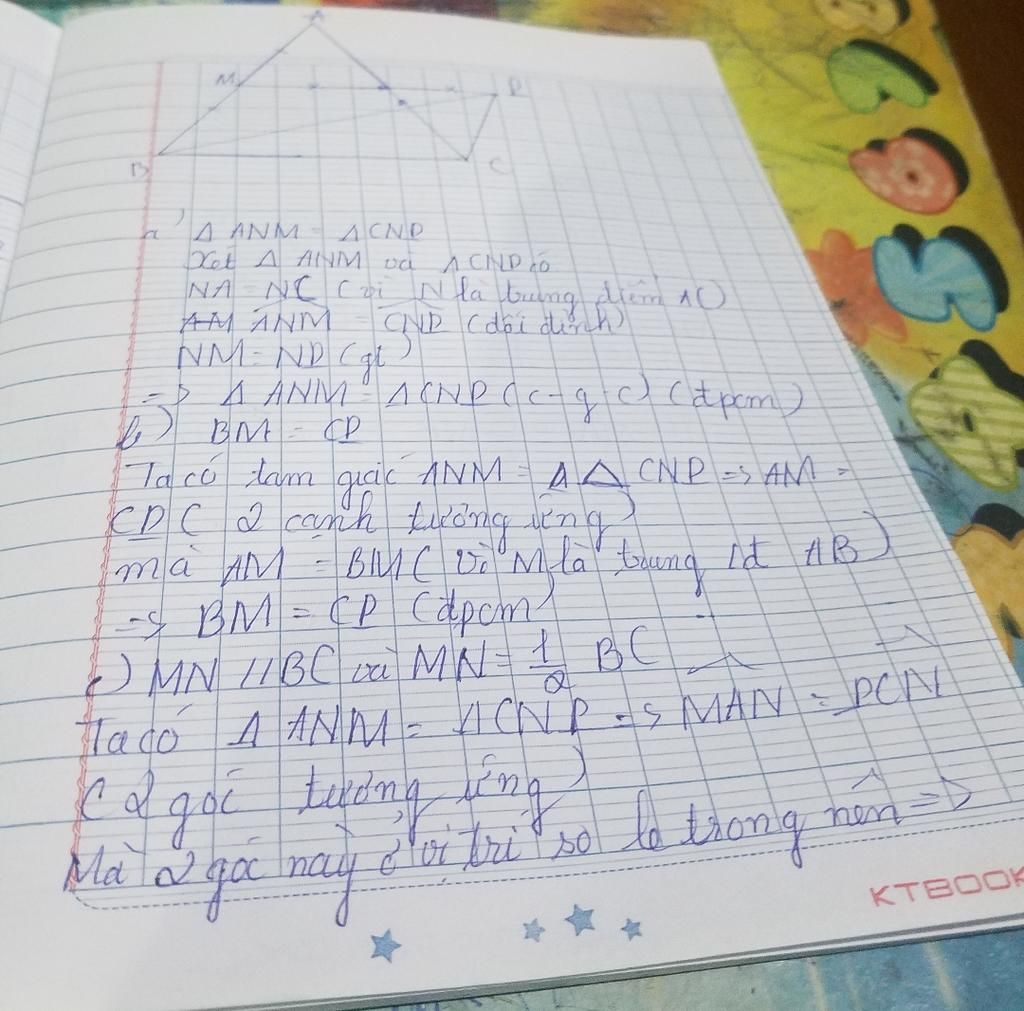 A
M
D
B
C
a) Δ ANM = ΔCND
Xét Δ ANM và ΔCND có
NA = NC (vì N là trung điểm AC)
AM ANM = CND (đối đỉnh)
NM = ND (gt)
=> Δ ANM = ΔCND (c-g-c) (đpcm)
b) BM = CD
Ta có tam giác ANM = Δ Δ CND => AM =
CD ( 2 cạnh tương ứng)
mà AM = BM ( vì M là trung đ AB)
=> BM = CD (đpcm)
c) MN // BC và MN = 1/2 BC
Ta có Δ ANM = ΔCND => MAN = DCN
( 2 góc tương ứng)
Mà 2 góc này ở vị trí so le trong nên =>
KTBOOK